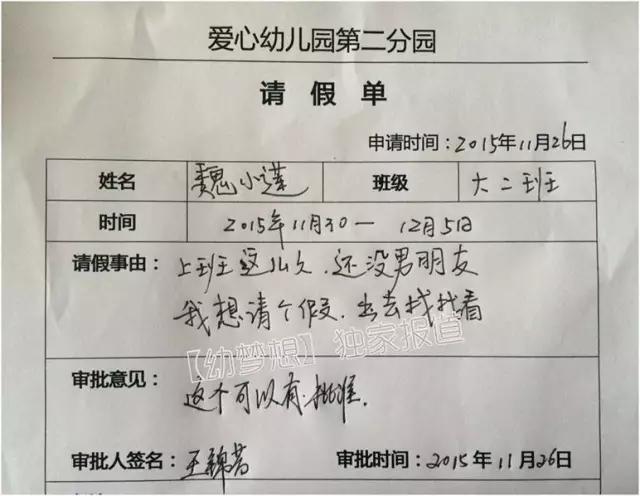 爱心幼儿园第二分园
请假单
申请时间:2015年11月26日
姓名 魏小莲 班级 大二班
时间 2015年11月30一 12月5日
请假事由:上班这么久.还没男朋友
我想请个假.出去找找看
【幼梦想】独家报道
审批意见:
这个可以有.批准.
审批人签名:王锦 审批时间:2015年11月26日